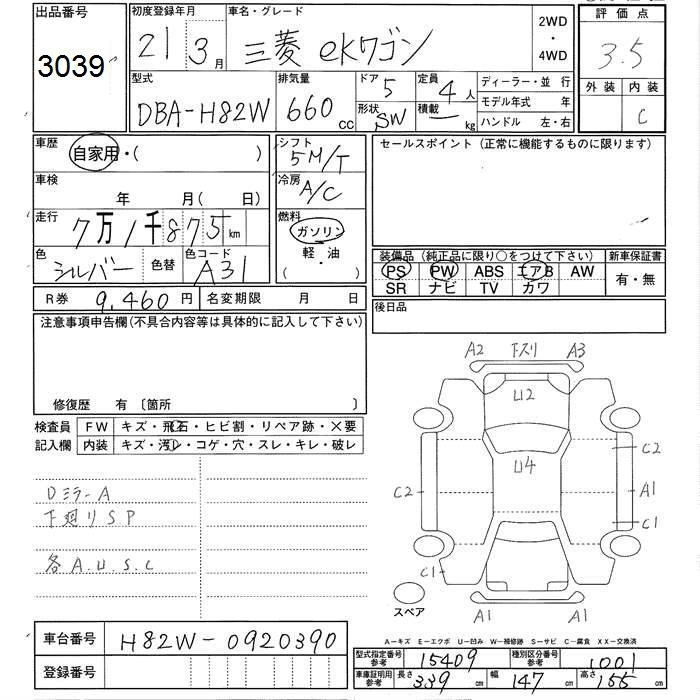 出品番号
3039
初度登録年月
21 3月
車名・グレード
三菱 ekワゴン
2WD
・
4WD
評価点
3.5
外装 内装
C
型式
DBA-H82W
排気量
660 cc
ドア
5
形状
SW
定員
4人
積載
— kg
ディーラー・並行
モデル年式 年
ハンドル 左・右
車歴
自家用・( )
シフト
5M/T
車検
年 月( 日)
冷房
A/C
走行
7万1千875km
燃料
ガソリン
軽・油
( )
色
シルバー
色替
色コード
A31
R券 9,460円
名変期限 月 日
セールスポイント (正常に機能するものに限ります)
装備品 (純正品に限り○をつけて下さい)
PS PW ABS エアB AW
SR ナビ TV カワ
新車保証書
有・無
後日品
注意事項申告欄(不具合内容等は具体的に記入して下さい)
修復歴 有 〔箇所 〕
検査員
記入欄
FW キズ・飛石・ヒビ割・リペア跡・×要
内装 キズ・汚レ・コゲ・穴・スレ・キレ・破レ
Dミラー A
下廻りSP
各A.U.S.C
A2 下スリ A3
U2
C2
U4
C2 A1
C1
C1
スペア
A1 A1
車台番号 H82W-0920390
登録番号
A—キズ E—エクボ U—凹み W—補修跡 S—サビ C—腐食 XX—交換済
型式指定番号
参考
15409
種別区分番号
参考
1001
車庫証明用
参考
長さ
339
幅
147
高さ
155